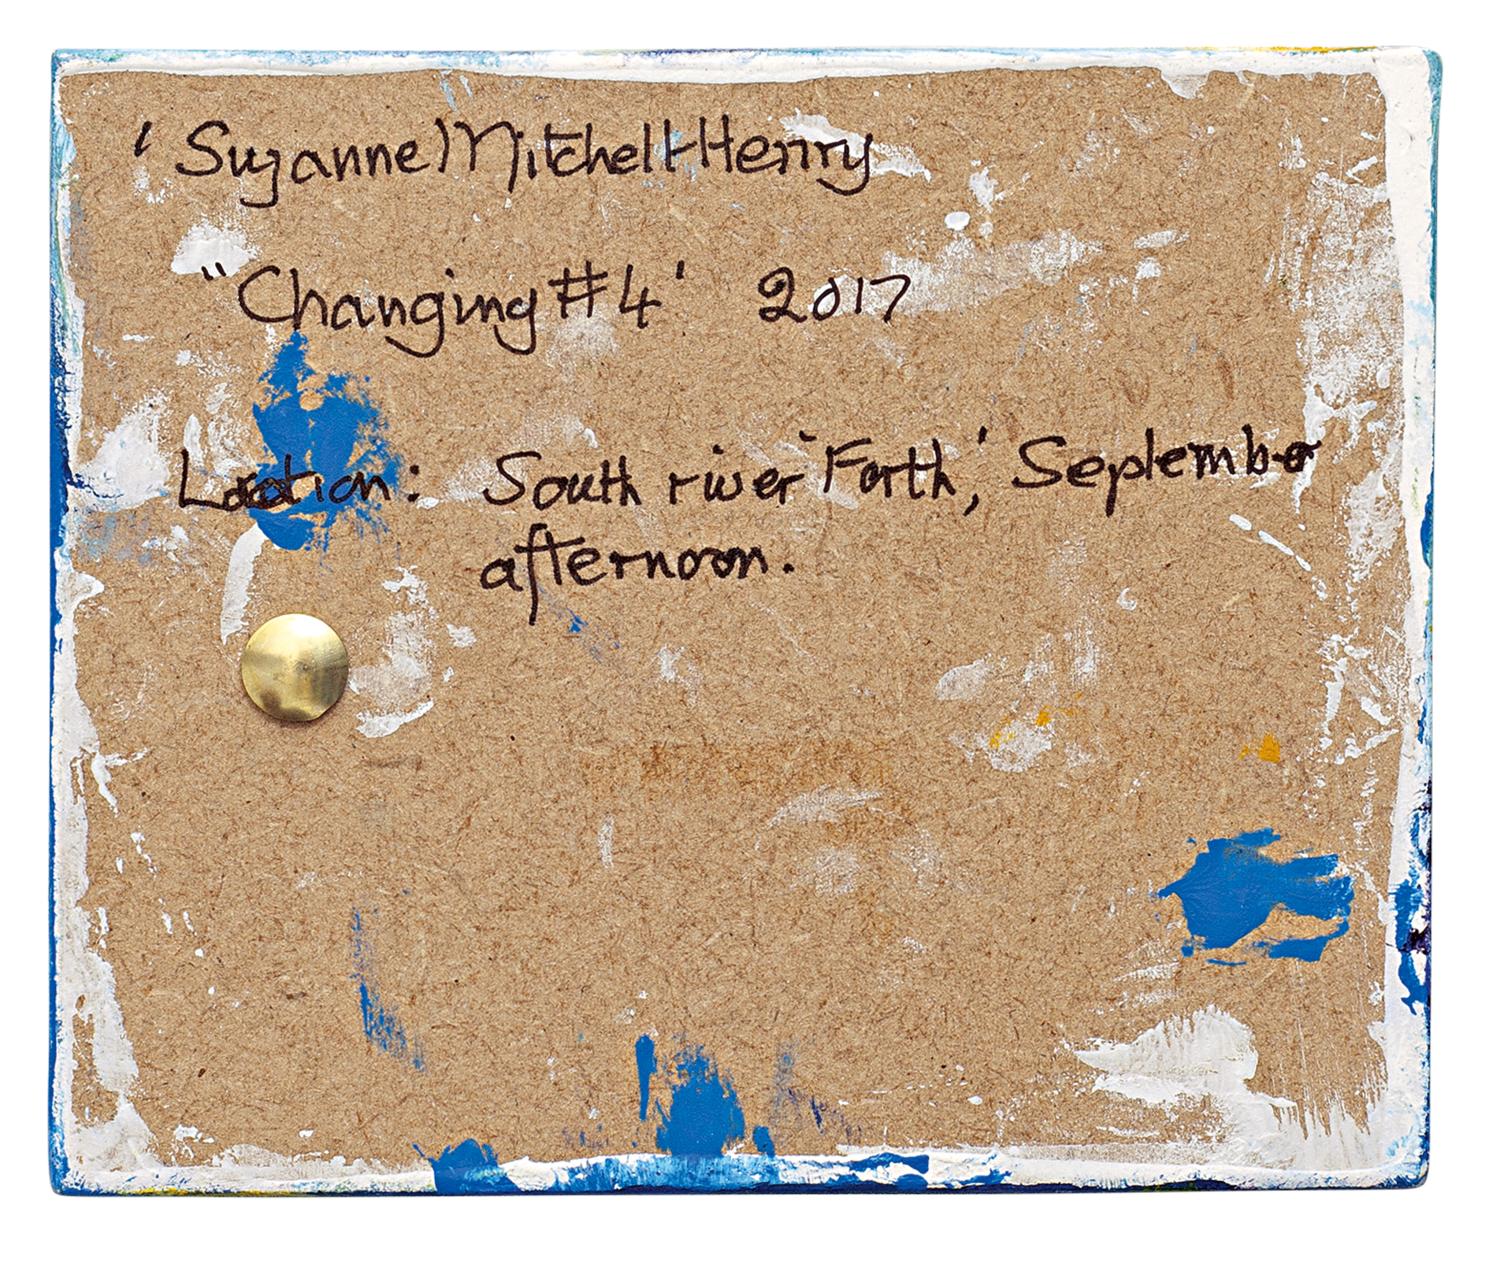 ' Suzanne Mitchell-Henry
"Changing #4' 2017
Location: South river 'Forth,' September
afternoon.